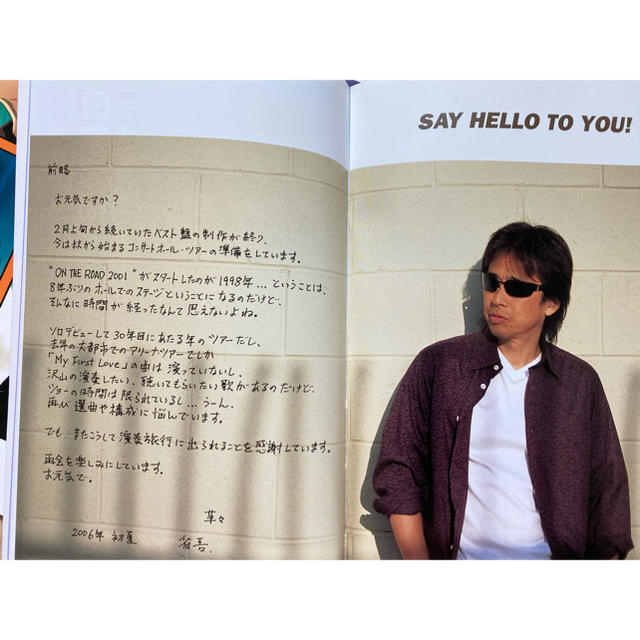 前略
お元気ですか?
2月上旬から続いていたベスト盤の制作が終り、
今は秋から始まるコンサートホール・ツアーの準備をしています。
"ON THE ROAD 2001"がスタートしたのが1998年...ということは、
8年ぶりのホールでのステージということになるのだけど、
そんなに時間が経ったなんて思えないよね。
ソロデビューして30年目にあたる年のツアーだし、
去年の大都市でのアリーナツアーでしか
「My First Love」の曲は演っていないし、
沢山の演奏したい、聴いてもらいたい歌があるのだけど、
ショーの時間は限られているし...うーん、
再び選曲や構成に悩んでいます。
でも、またこうして演奏旅行に出られることを感謝しています。
再会を楽しみにしています。
お元気で。
草々
2006年 初夏 省吾.
SAY HELLO TO YOU!